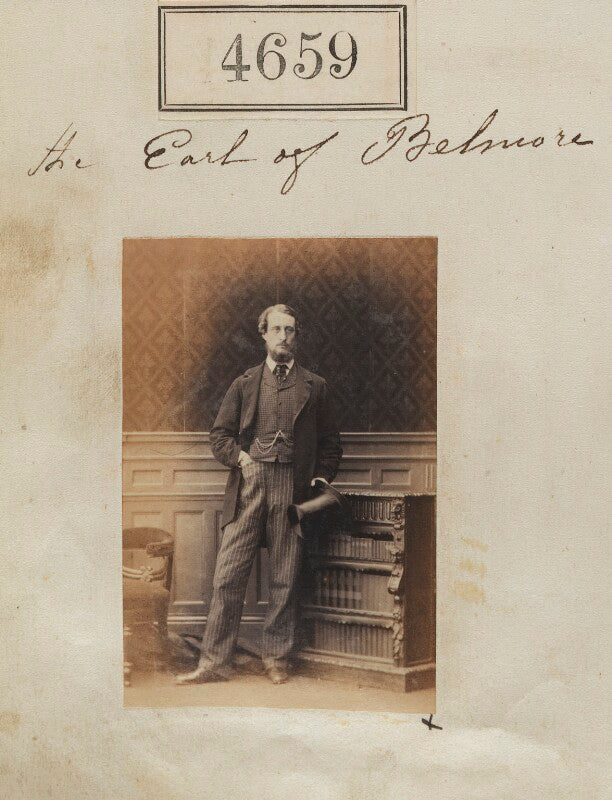 4659
the Earl of Belmore
x